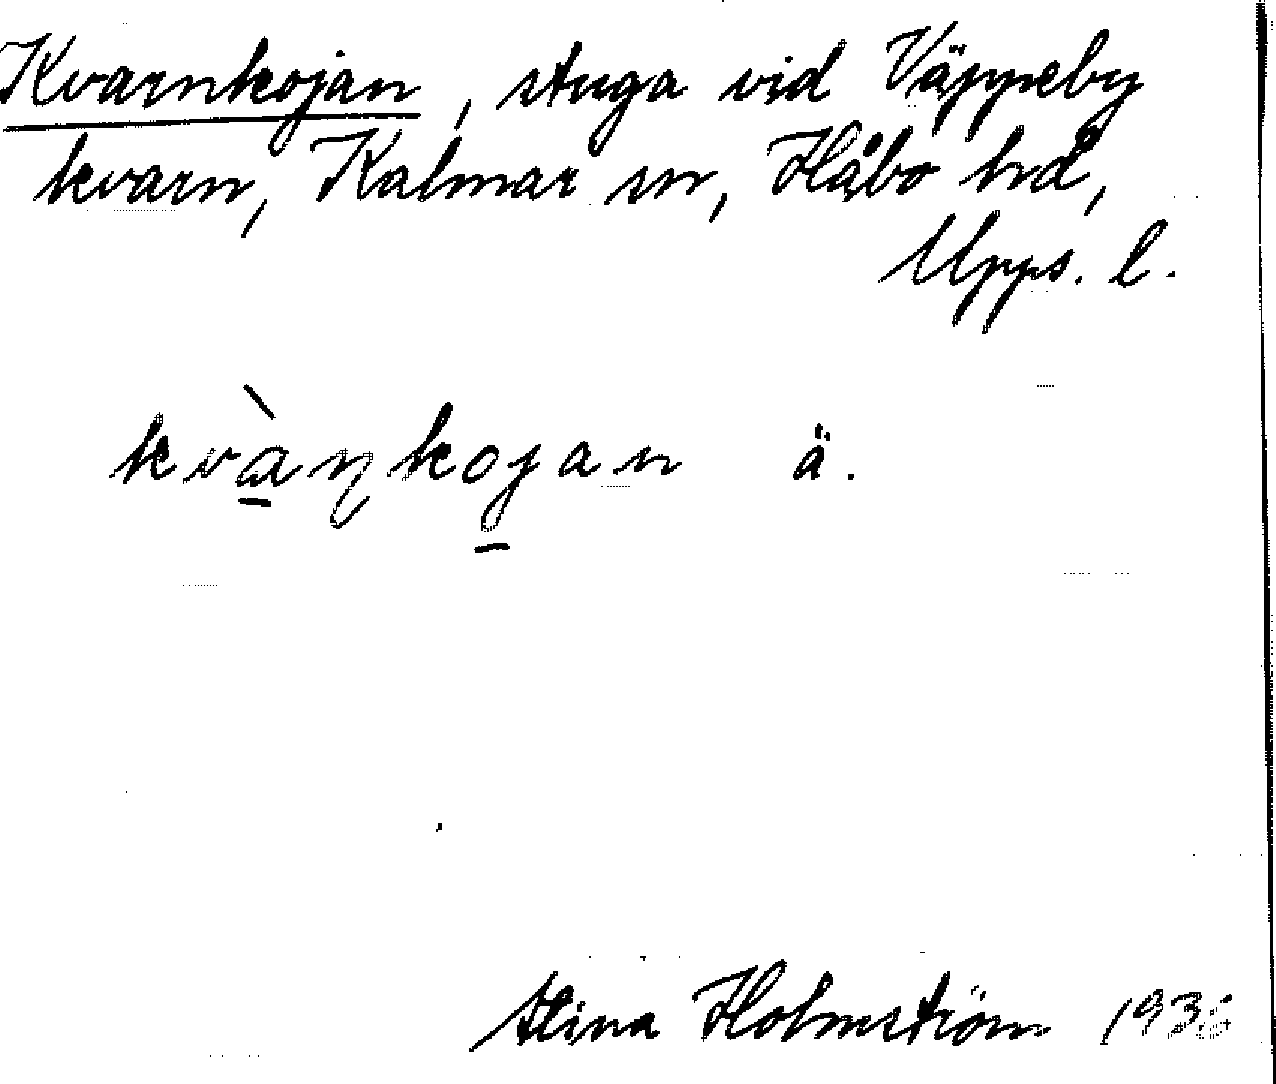 Kvarnkojan, stuga vid Väppeby
kvarn, Kalmar sn, Håbo hd,
Upps. l.
kvàɳkojan ä.
Holmström